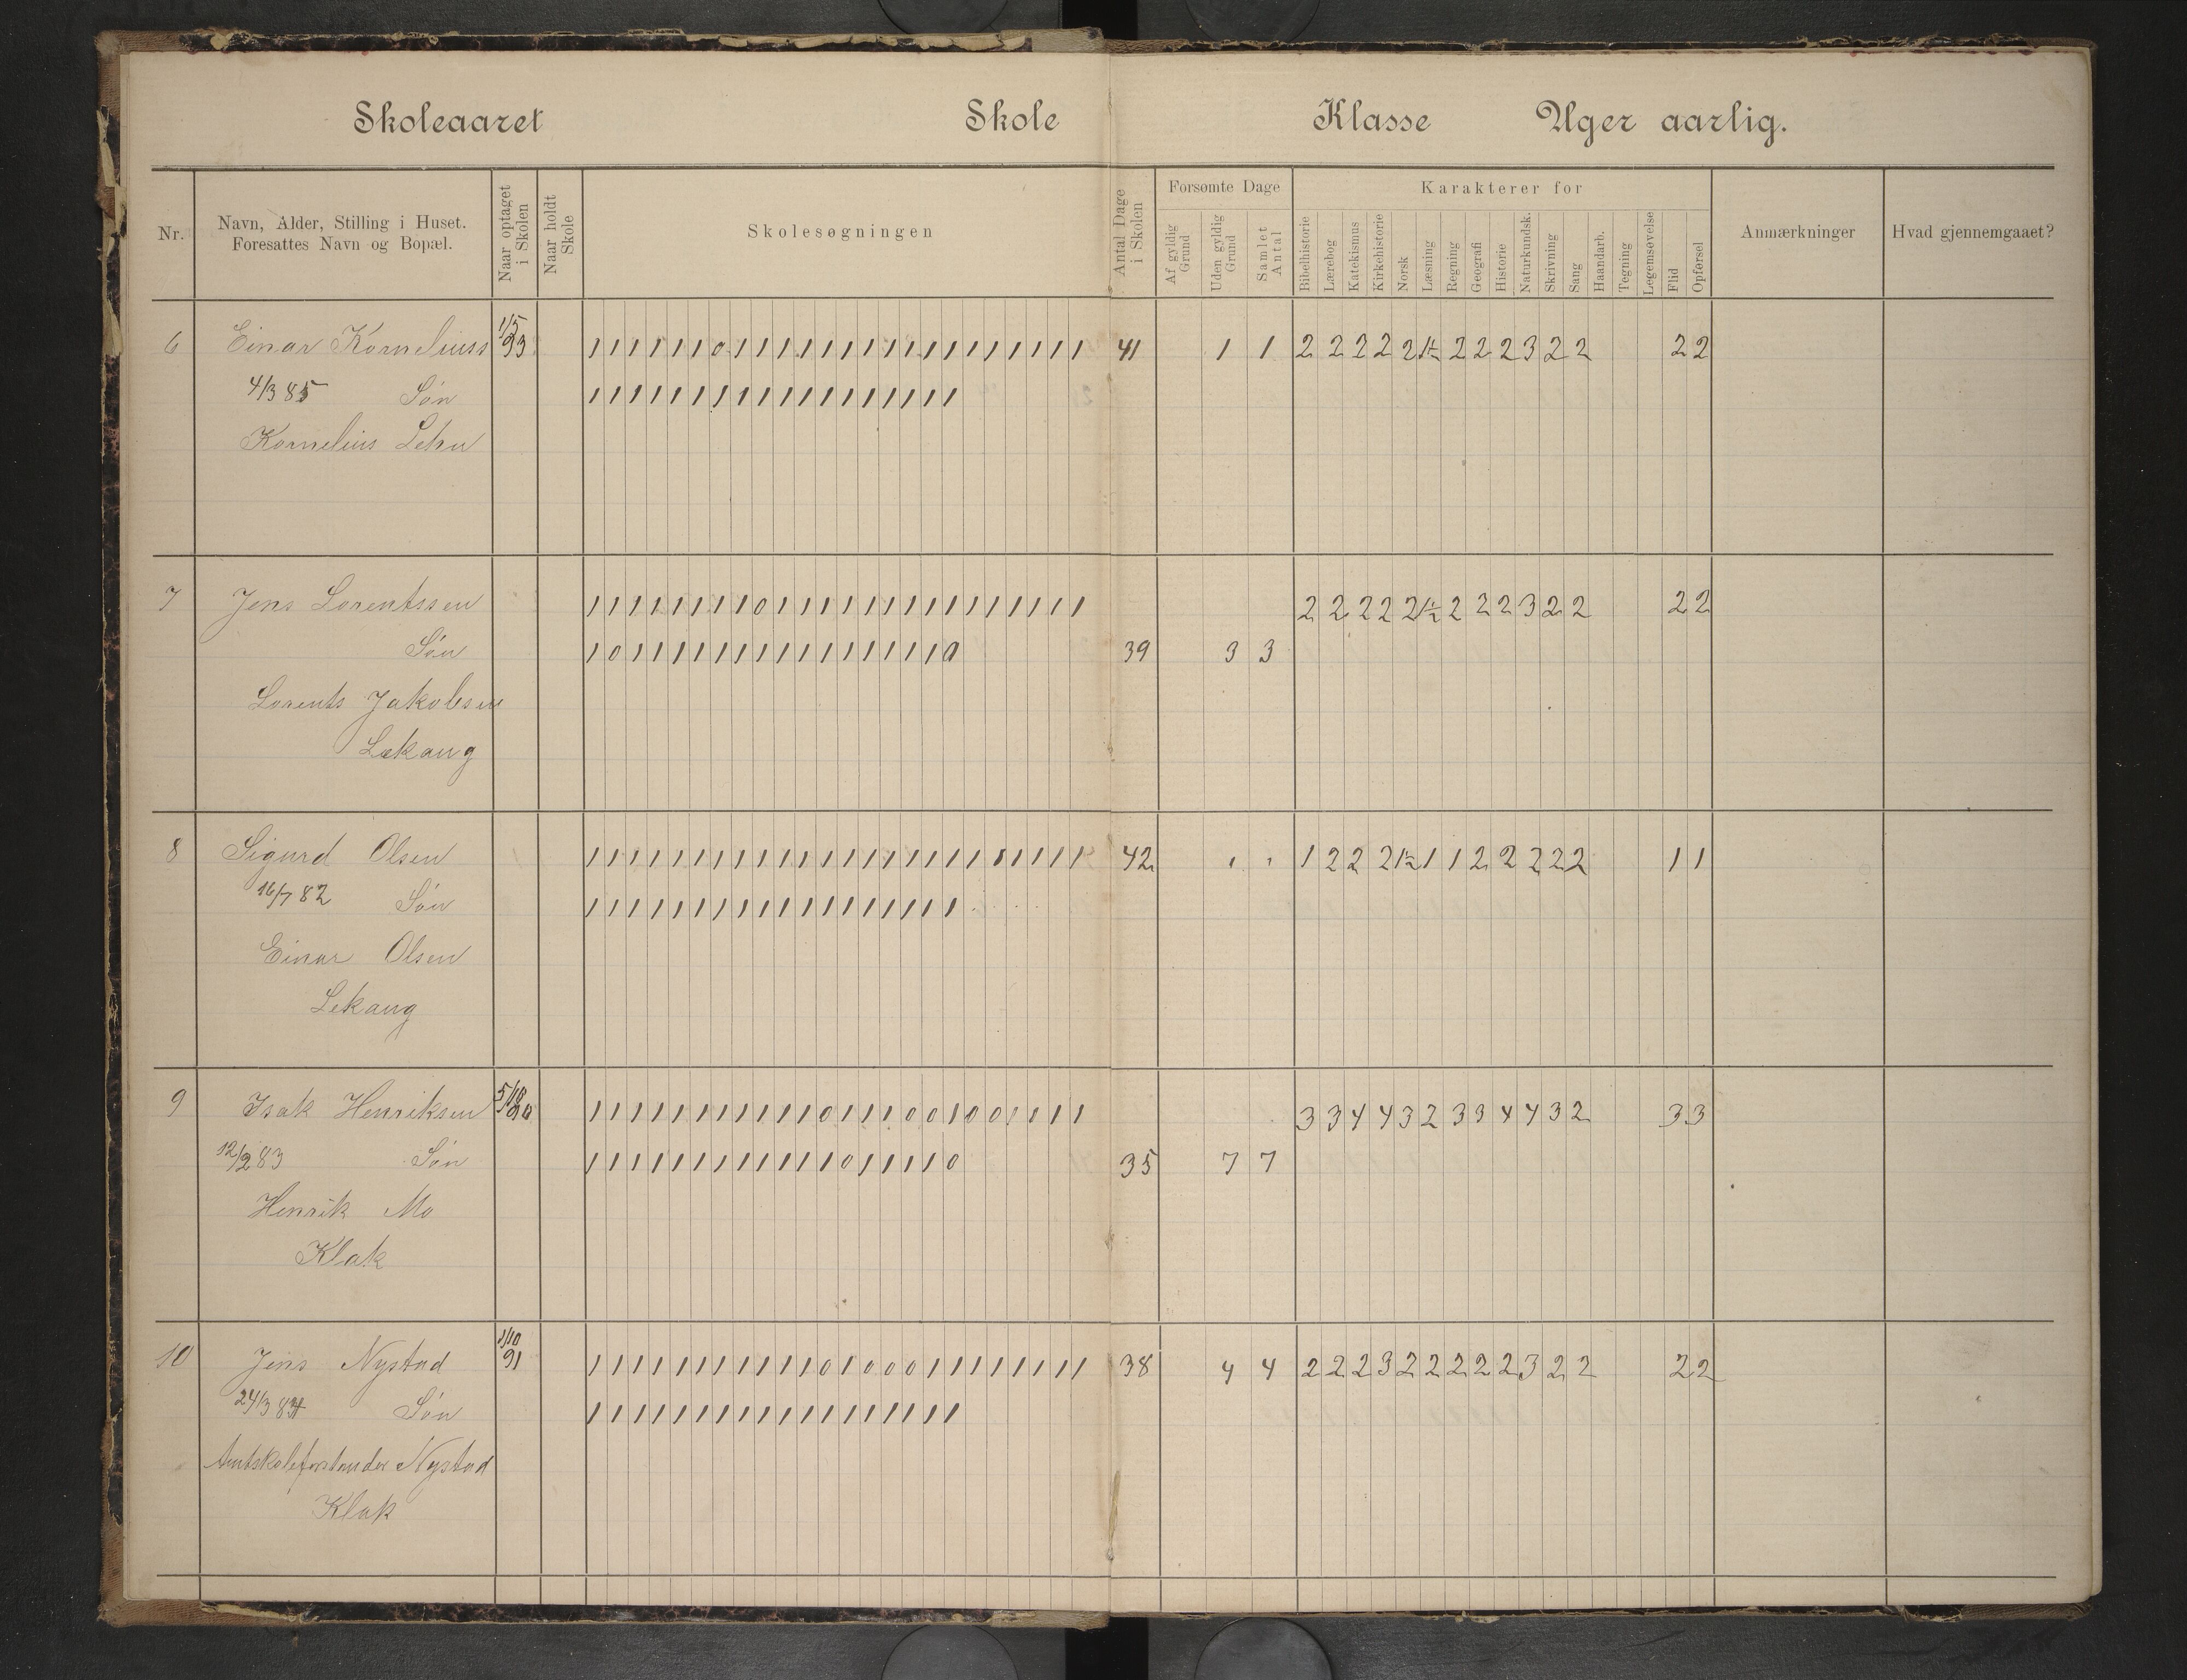 Skoleaaret Skole Klasse Uger aarlig.
Nr.
Navn, Alder, Stilling i Huset.
Foresattes Navn og Bopæl.
Naar optaget
i Skolen
Naar holdt
Skole
Skolesøgningen
Antal Dage
i Skolen
Forsømte Dage
Af gyldig
Grund
Uden gyldig
Grund
Samlet
Antal
Karakterer for
Bibelhistorie
Lærebog
Katekismus
Kirkehistorie
Norsk
Læsning
Regning
Geografi
Historie
Naturkundsk.
Skrivning
Sang
Haandarb.
Tegning
Legemsøvelse
Flid
Opførsel
Anmærkninger
Hvad gjennemgaaet?
6 Einar Korneliuss 1/5 93 1 1 1 1 1 1 0 1 1 1 1 1 1 1 1 1 1 1 1 1 1 1 1 1 41 1 1 2 2 2 2 2 1½ 2 2 2 3 2 2 2 2
4/3 85 Søn 1 1 1 1 1 1 1 1 1 1 1 1 1 1 1 1 1 1
Kornelius
7 Jens Lorentssen 1 1 1 1 1 1 1 1 0 1 1 1 1 1 1 1 1 1 1 1 1 1 1 1 2 2 2 2 2 1½ 2 2 2 3 2 2 2 2
Søn 1 0 1 1 1 1 1 1 1 1 1 1 1 1 1 1 1 0 39 3 3
Lorents Jakobsen
Lekang
8 Sigurd Olsen 1 1 1 1 1 1 1 1 1 1 1 1 1 1 1 1 1 1 1 1 1 1 1 1 42 1 2 2 2 1½ 1 1 2 2 2 2 2 1 1
16/7 82 Søn 1 1 1 1 1 1 1 1 1 1 1 1 1 1 1 1 1 1
Einar Olsen
Lekang
9 Isak Henriksen 1 1 1 1 1 1 1 1 1 1 1 0 1 1 1 0 0 1 0 0 1 1 1 1 3 3 4 4 3 2 3 3 4 4 3 2 3 3
12/2 83 Søn 1 1 1 1 1 1 1 1 1 1 1 1 0 1 1 1 1 0 35 7 7
Henrik Mo
Klak
10 Jens Nystad 1/10 91 1 1 1 1 1 1 1 1 1 1 1 0 1 0 0 0 1 1 1 1 1 1 1 1 38 4 4 2 2 2 3 2 2 2 2 2 3 2 2 2 2
24/3 Søn 1 1 1 1 1 1 1 1 1 1 1 1 1 1 1 1 1 1
Amtskoleforstander Nystad
Klak